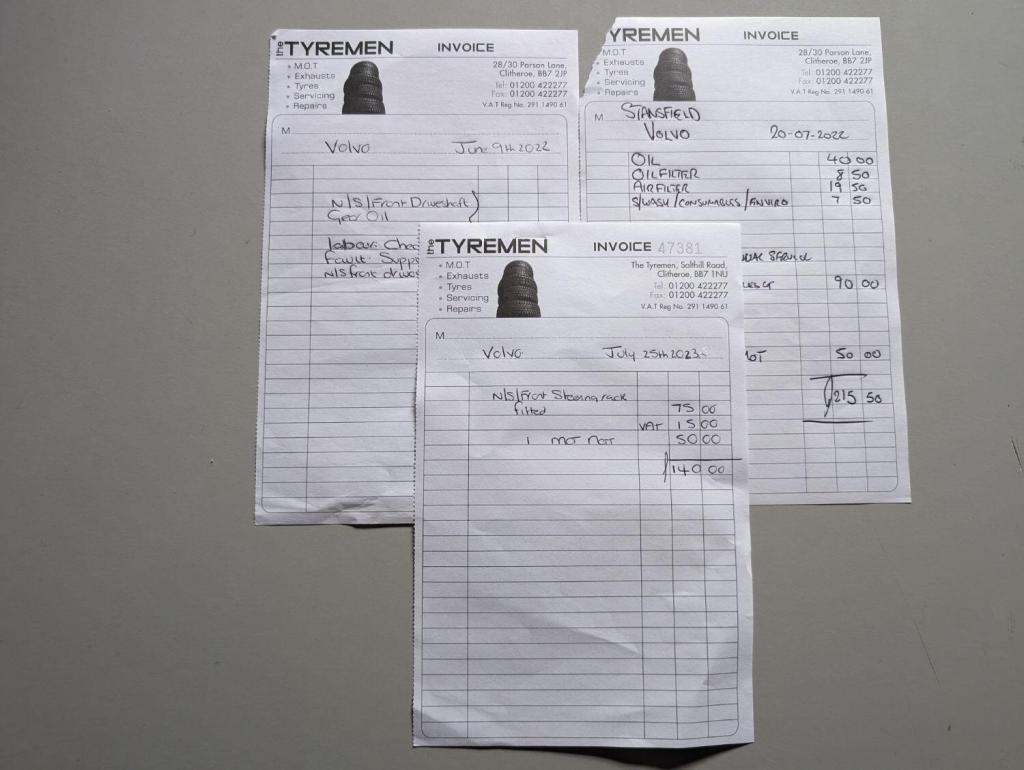 the TYREMEN INVOICE
• M.O.T
• Exhausts
• Tyres
• Servicing
• Repairs
28/30 Parson Lane,
Clitheroe, BB7 2JP
Tel: 01200 422277
Fax: 01200 422277
V.A.T Reg No. 291 1490 61
M
Volvo June 9th 2022
N/S/Front Driveshaft
Gear Oil
labour: Chec
Fault. Supp
N/S front drives
YREMEN INVOICE
M.O.T
• Exhausts
• Tyres
• Servicing
• Repairs
28/30 Parson Lane,
Clitheroe, BB7 2JP
Tel: 01200 422277
Fax: 01200 422277
V.A.T Reg No. 291 1490 61
M STANSFIELD
VOLVO 20-07-2022
OIL 40 00
OILFILTER 8 50
AIRFILTER 19 50
S/WASH/CONSUMABLES/ENVIRO 7 50
SERVICE
90 00
MOT 50 00
£215 50
the TYREMEN INVOICE 47381
• M.O.T
• Exhausts
• Tyres
• Servicing
• Repairs
The Tyremen, Salthill Road,
Clitheroe, BB7 1NU
Tel: 01200 422277
Fax: 01200 422277
V.A.T Reg No. 291 1490 61
M
Volvo July 25th 2023
N/S/Front Steering rack
fitted 75 00
VAT 15 00
1 MOT 50 00
£140 00